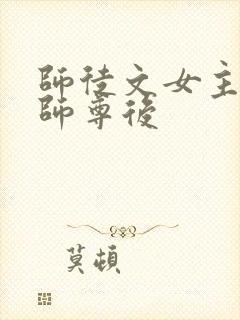 師徒文女主
師尊後
莫頓